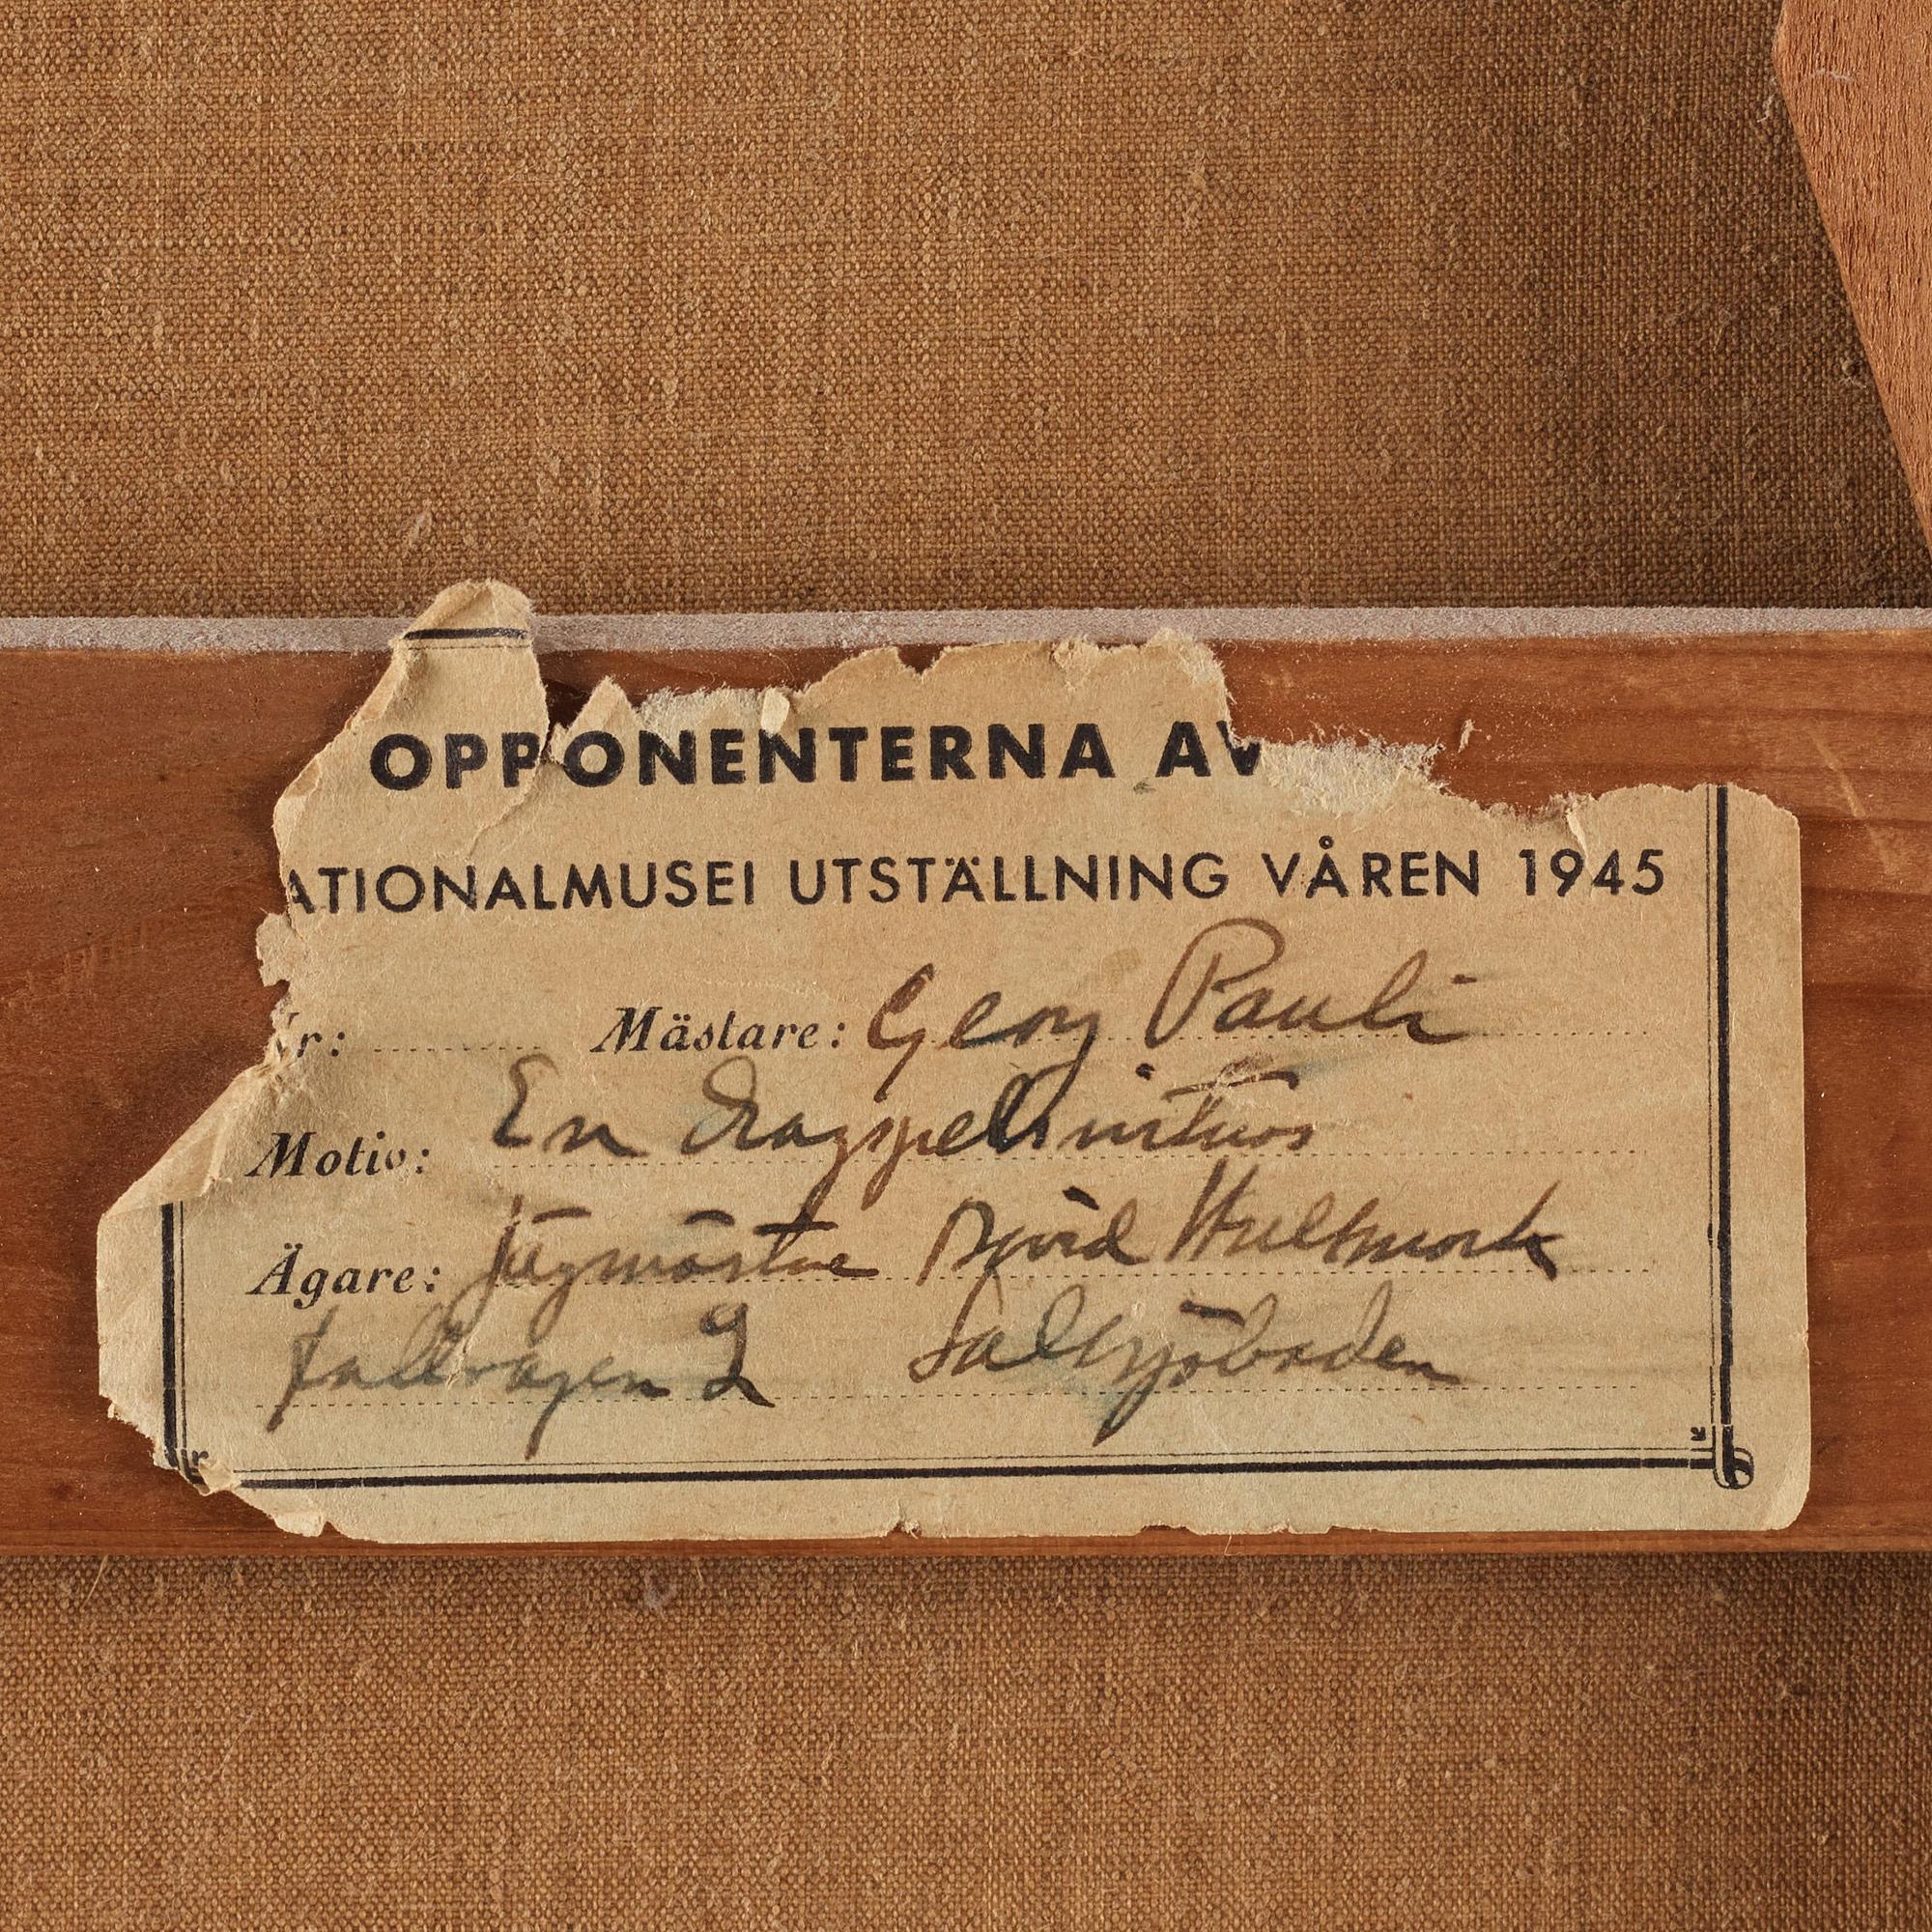 OPPONENTERNA AV
ATIONALMUSEI UTSTÄLLNING VÅREN 1945
Nr: Mästare: Georg Pauli
Motiv: En
Ägare: Jägmästare David Hultmark
Tallvägen 2 Saltsjöbaden